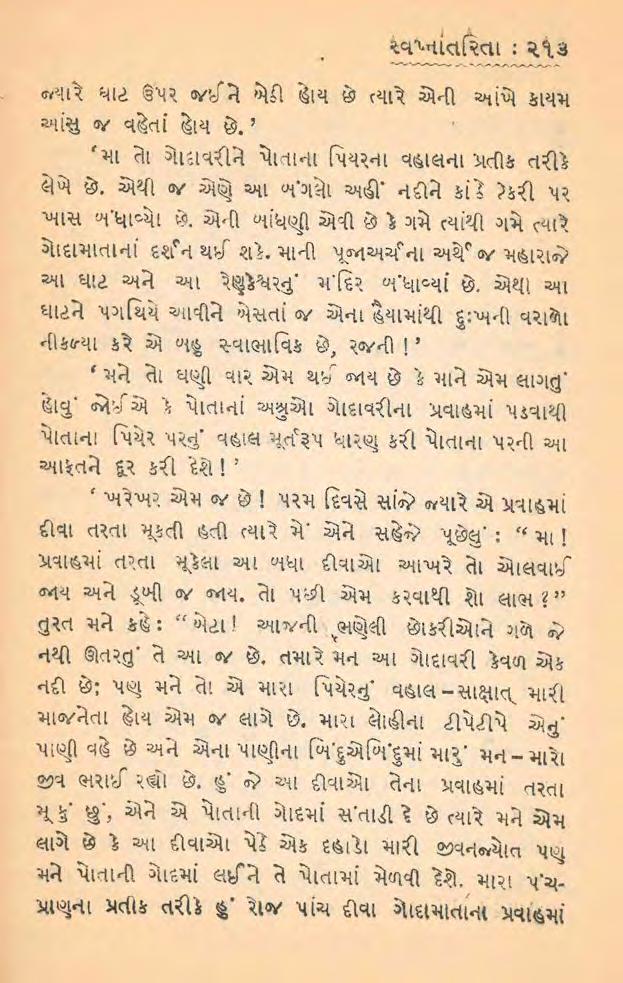 સ્વપ્નાંતરિતા : ૨૧૩
જ્યારે ઘાટ ઉપર જઈને બેઠી હોય છે ત્યારે એની આંખે કાયમ
આંસુ જ વહેતાં હોય છે.’
‘મા તો ગોદાવરીને પોતાના પિયરના વહાલના પ્રતીક તરીકે
લેખે છે. એથી જ એણે આ બંગલો અહીં નદીને કાંઠે ટેકરી પર
ખાસ બંધાવ્યો છે. એની બાંધણી એવી છે કે ગમે ત્યાંથી ગમે ત્યારે
ગોદામાતાનાં દર્શન થઈ શકે. માની પૂજાઅર્ચના અર્થે જ મહારાજે
આ ઘાટ અને આ રેણુકેશ્વરનું મંદિર બંધાવ્યાં છે. એથી આ
ઘાટને પગથિયે આવીને બેસતાં જ એના હૈયામાંથી દુઃખની વરાળો
નીકળ્યા કરે એ બહુ સ્વાભાવિક છે, રજની !’
‘મને તો ઘણી વાર એમ થઈ જાય છે કે માને એમ લાગતું
હોવું જોઈએ કે પોતાનાં અશ્રુઓ ગોદાવરીના પ્રવાહમાં પડવાથી
પોતાના પિયેર પરનું વહાલ મૂર્તરૂપ ધારણ કરી પોતાના પરની આ
આફતને દૂર કરી દેશે !’
‘ખરેખર એમ જ છે ! પરમ દિવસે સાંજે જ્યારે એ પ્રવાહમાં
દીવા તરતા મૂકતી હતી ત્યારે મેં એને સહેજે પૂછેલું : “મા !
પ્રવાહમાં તરતા મૂકેલા આ બધા દીવાઓ આખરે તો ઓલવાઈ
જાય અને ડૂબી જ જાય. તો પછી એમ કરવાથી શો લાભ ?”
તુરત મને કહે : “બેટા ! આજની ભણેલી છોકરીઓને ગળે જે
નથી ઊતરતું તે આ જ છે. તમારે મન આ ગોદાવરી કેવળ એક
નદી છે; પણ મને તો એ મારા પિયેરનું વહાલ – સાક્ષાત્ મારી
માજનેતા હોય એમ જ લાગે છે. મારા લોહીના ટીપેટીપે એનું
પાણી વહે છે અને એના પાણીના બિંદુએબિંદુમાં મારું મન – મારો
જીવ ભરાઈ રહ્યો છે. હું જે આ દીવાઓ તેના પ્રવાહમાં તરતા
મૂકું છું, એને એ પોતાની ગોદમાં સંતાડી દે છે ત્યારે મને એમ
લાગે છે કે આ દીવાઓ પેઠે એક દહાડો મારી જીવનજ્યોત પણ
મને પોતાની ગોદમાં લઈને તે પોતામાં મેળવી દેશે. મારા પંચ-
પ્રાણના પ્રતીક તરીકે હું રોજ પાંચ દીવા ગોદામાતાના પ્રવાહમાં